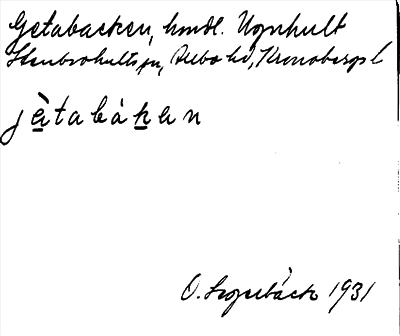 Getabacken, hmdl. Ugnhult
Stenbrohults sn, Allbo hd, Kronobergs l
jètabákan
O. 1931